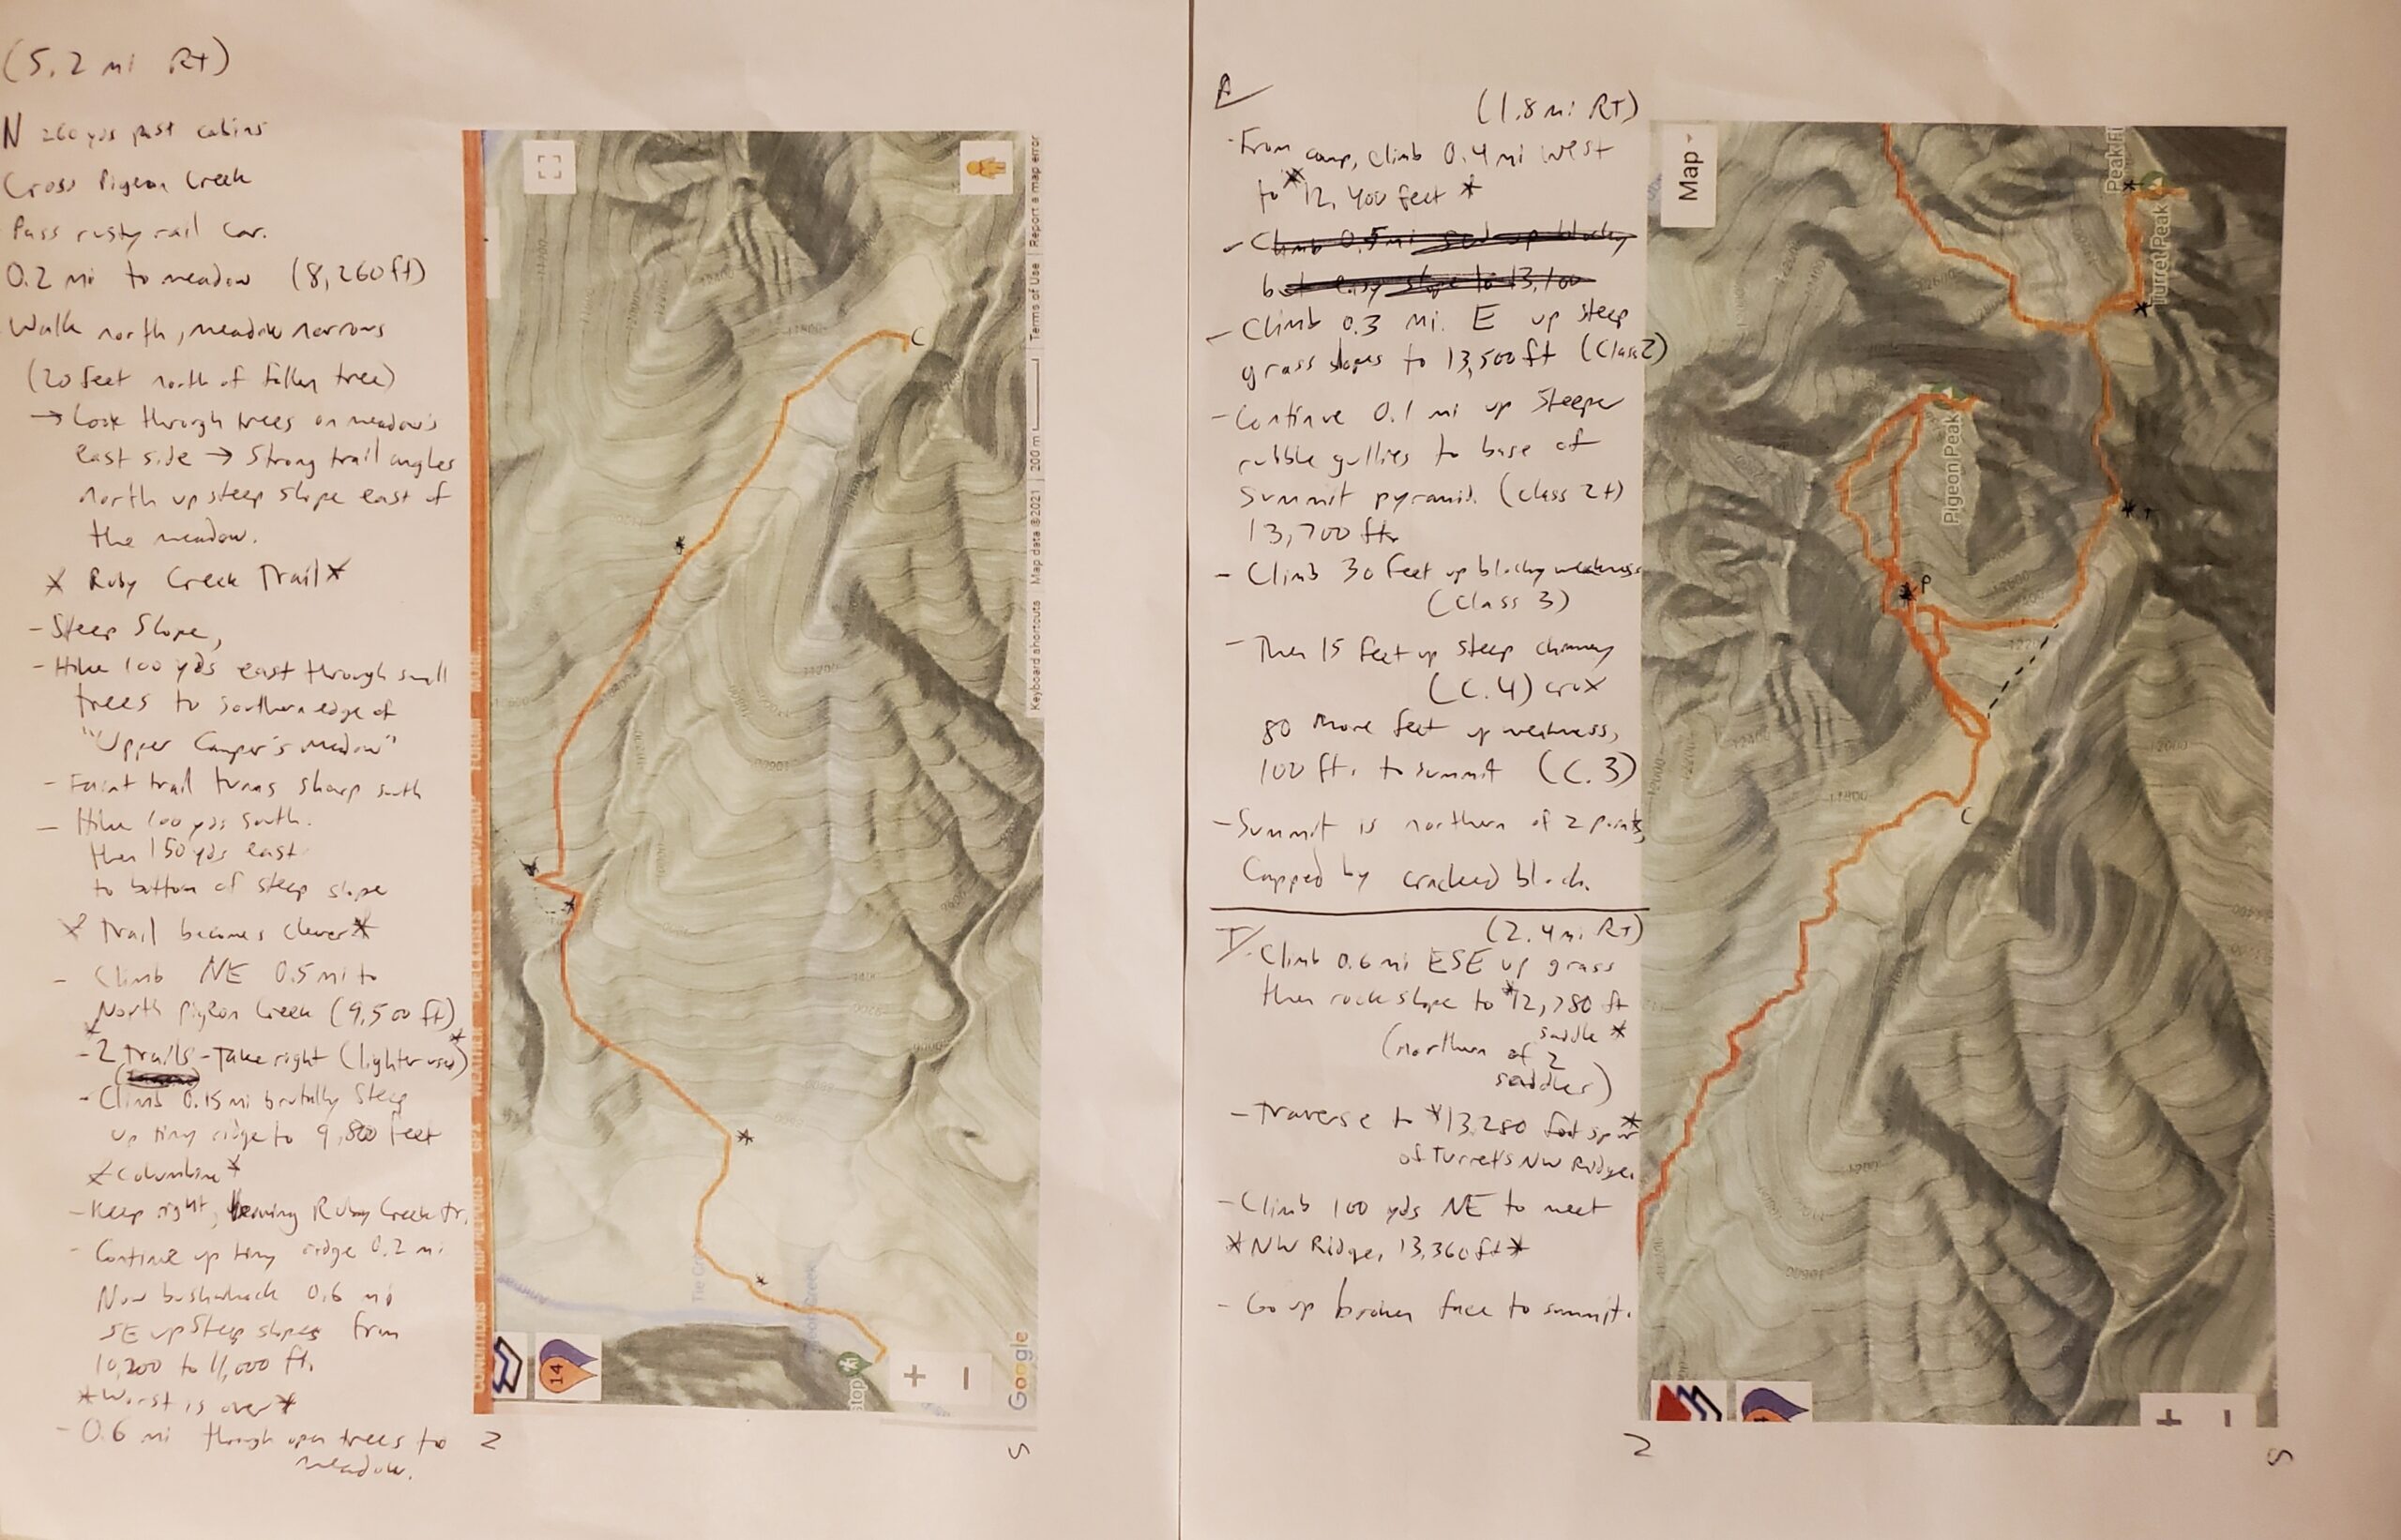 (5.2 mi Rt)
N 260 yds past cabins
Cross Pigeon Creek
Pass rusty rail car.
0.2 mi to meadow (8,260ft)
Walk north, meadow narrows
(20 feet north of fallen tree)
→ Look through trees on meadow's
east side → Strong trail angles
north up steep slope east of
the meadow.
* Ruby Creek Trail *
- Steep Slope,
- Hike 100 yds east through small
trees to southern edge of
"Upper Camper's Meadow"
- Faint trail turns sharp south
- Hike 100 yds south.
then 150 yds east
to bottom of steep slope
* Trail becomes clever *
- Climb NE 0.5 mi to
North Pigeon Creek (9,500 ft)
* - 2 trails - Take right (lighter used) *
- Climb 0.15 mi brutally steep
up tiny ridge to 9,800 feet
* Columbine *
- Keep right, leaving Ruby Creek tr.
- Continue up tiny ridge 0.2 mi
Now bushwhack 0.6 mi
SE up steep slopes from
10,200 to 11,000 ft.
* Worst is over *
- 0.6 mi through open trees to
meadow.
Keyboard shortcuts Map data ©2021 200 m Terms of Use Report a map error
C
11200
stop
14
+
−
Google
N
S
(1.8 mi RT)
- From camp, climb 0.4 mi west
to * 12,400 feet *
- Climb 0.5 mi up blocky
but easy slope to 13,100
- Climb 0.3 mi. E up steep
grass slopes to 13,500 ft (Class 2)
- Continue 0.1 mi up steeper
rubble gullies to base of
Summit pyramid. (class 2+)
13,700 ft.
- Climb 30 feet up blocky weakness
(Class 3)
- Then 15 feet up steep chimney
(C.4) crux
80 more feet up weakness,
100 ft. to summit (C.3)
- Summit is northern of 2 points,
Capped by cracked block.
(2.4 mi RT)
T/. Climb 0.6 mi ESE up grass
then rock slope to * 12,780 ft
saddle *
(northern of 2
saddles)
- Traverse to * 13,280 foot spur *
of Turret's NW Ridge.
- Climb 100 yds NE to meet
* NW Ridge, 13,360 ft *
- Go up broken face to summit.
Map
Turret Peak
Pigeon Peak
P
T
C
+
−
N
S